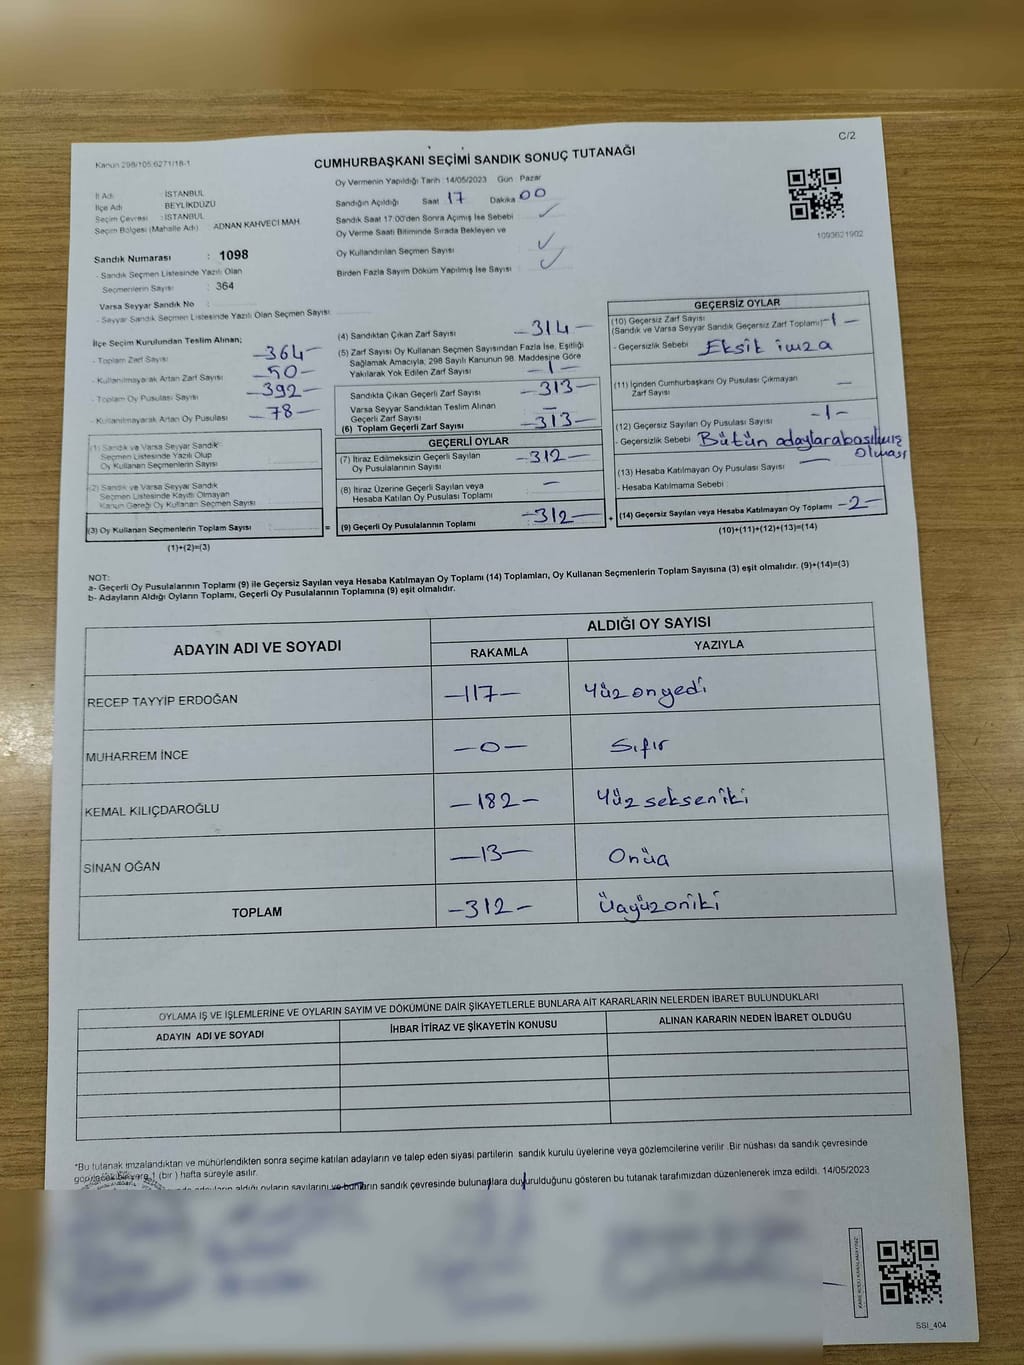 C/2
Kanun 298/105,6271/18-1
CUMHURBAŞKANI SEÇİMİ SANDIK SONUÇ TUTANAĞI
İl Adı : İSTANBUL
İlçe Adı : BEYLİKDÜZÜ
Seçim Çevresi : İSTANBUL
Seçim Bölgesi (Mahalle Adı) ADNAN KAHVECİ MAH.
Sandık Numarası : 1098
- Sandık Seçmen Listesinde Yazılı Olan
Seçmenlerin Sayısı : 364
Varsa Seyyar Sandık No :
- Seyyar Sandık Seçmen Listesinde Yazılı Olan Seçmen Sayısı:
Oy Vermenin Yapıldığı Tarih : 14/05/2023 Gün Pazar
Sandığın Açıldığı Saat 17 Dakika 00
Sandık Saat 17:00'den Sonra Açımış İse Sebebi
Oy Verme Saati Bitiminde Sırada Bekleyen ve
Oy Kullandırılan Seçmen Sayısı
Birden Fazla Sayım Döküm Yapılmış İse Sayısı
1093621902
İlçe Seçim Kurulundan Teslim Alınan;
- Toplam Zarf Sayısı -364-
- Kullanılmayarak Artan Zarf Sayısı -50-
- Toplam Oy Pusulası Sayısı -392-
- Kullanılmayarak Artan Oy Pusulası -78-
(1) Sandık ve Varsa Seyyar Sandık
Seçmen Listesinde Yazılı Olup
Oy Kullanan Seçmenlerin Sayısı
(2) Sandık ve Varsa Seyyar Sandık
Seçmen Listesinde Kayıtlı Olmayan
Kanun Gereği Oy Kullanan Seçmen Sayısı
(3) Oy Kullanan Seçmenlerin Toplam Sayısı =
(1)+(2)=(3)
(4) Sandıktan Çıkan Zarf Sayısı -314-
(5) Zarf Sayısı Oy Kullanan Seçmen Sayısından Fazla İse, Eşitliği
Sağlamak Amacıyla; 298 Sayılı Kanunun 98. Maddesine Göre
Yakılarak Yok Edilen Zarf Sayısı -1-
Sandıkta Çıkan Geçerli Zarf Sayısı -313-
Varsa Seyyar Sandıktan Teslim Alınan
Geçerli Zarf Sayısı -
(6) Toplam Geçerli Zarf Sayısı -313-
GEÇERLİ OYLAR
(7) İtiraz Edilmeksizin Geçerli Sayılan
Oy Pusulalarının Sayısı -312-
(8) İtiraz Üzerine Geçerli Sayılan veya
Hesaba Katılan Oy Pusulası Toplamı -
(9) Geçerli Oy Pusulalarının Toplamı -312- +
GEÇERSİZ OYLAR
(10) Geçersiz Zarf Sayısı
(Sandık ve Varsa Seyyar Sandık Geçersiz Zarf Toplamı) -1-
- Geçersizlik Sebebi Eksik imza
(11) İçinden Cumhurbaşkanı Oy Pusulası Çıkmayan
Zarf Sayısı -
(12) Geçersiz Sayılan Oy Pusulası Sayısı -1-
- Geçersizlik Sebebi Bütün adaylara basılmış
olması
(13) Hesaba Katılmayan Oy Pusulası Sayısı -
- Hesaba Katılmama Sebebi
(14) Geçersiz Sayılan veya Hesaba Katılmayan Oy Toplamı -2-
(10)+(11)+(12)+(13)=(14)
NOT:
a- Geçerli Oy Pusulalarının Toplamı (9) ile Geçersiz Sayılan veya Hesaba Katılmayan Oy Toplamı (14) Toplamları, Oy Kullanan Seçmenlerin Toplam Sayısına (3) eşit olmalıdır. (9)+(14)=(3)
b- Adayların Aldığı Oyların Toplamı, Geçerli Oy Pusulalarının Toplamına (9) eşit olmalıdır.
ADAYIN ADI VE SOYADI ALDIĞI OY SAYISI
RAKAMLA YAZIYLA
RECEP TAYYİP ERDOĞAN -117- Yüzonyedi
MUHARREM İNCE -0- Sıfır
KEMAL KILIÇDAROĞLU -182- Yüzsekseniki
SİNAN OĞAN -13- Onüç
TOPLAM -312- Üçyüzoniki
OYLAMA İŞ VE İŞLEMLERİNE VE OYLARIN SAYIM VE DÖKÜMÜNE DAİR ŞİKAYETLERLE BUNLARA AİT KARARLARIN NELERDEN İBARET BULUNDUKLARI
ADAYIN ADI VE SOYADI İHBAR İTİRAZ VE ŞİKAYETİN KONUSU ALINAN KARARIN NEDEN İBARET OLDUĞU
*Bu tutanak imzalandıktan ve mühürlendikten sonra seçime katılan adayların ve talep eden siyasi partilerin sandık kurulu üyelerine veya gözlemcilerine verilir. Bir nüshası da sandık çevresinde
görülecek bir yere 1 (bir ) hafta süreyle asılır.
adayların aldığı oyların sayılarını ve bunların sandık çevresinde bulunanlara duyurulduğunu gösteren bu tutanak tarafımızdan düzenlenerek imza edildi. 14/05/2023
SSI_404